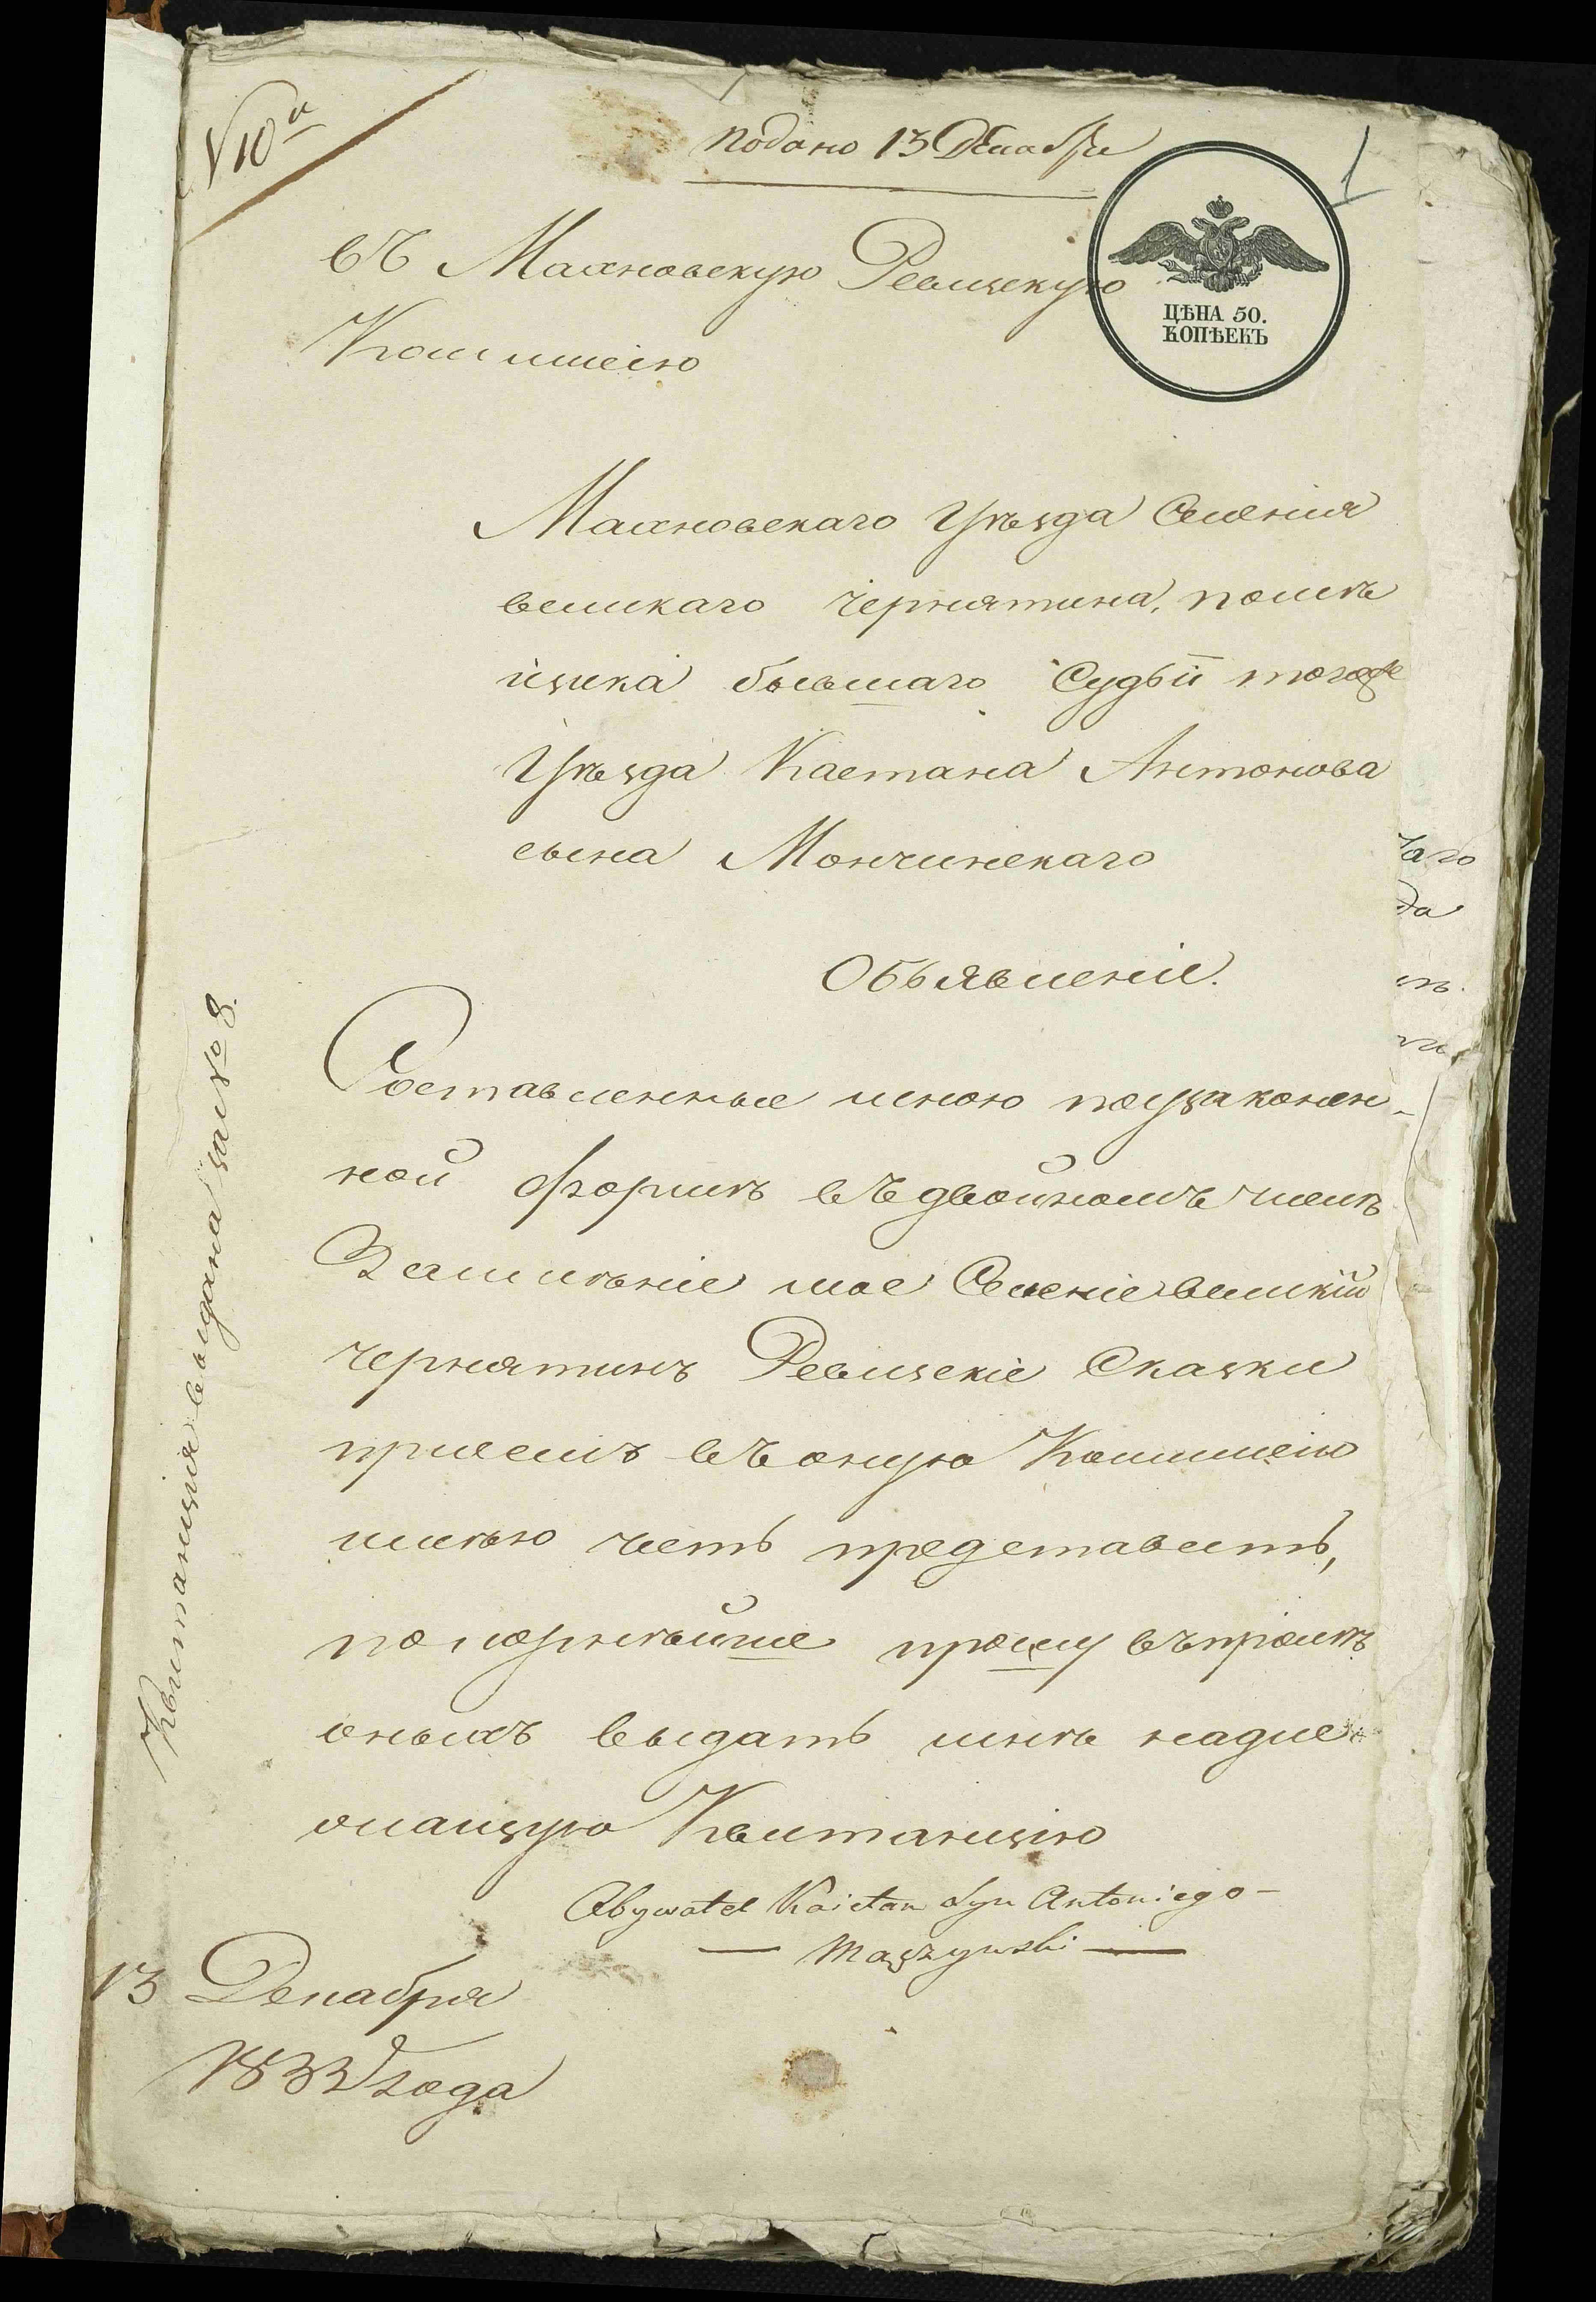 № 10й
Подано 13 Декабря
1
въ Махновскую Ревизскую
Коммисію
ЦѢНА 50.
КОПѢЕКЪ
Махновскаго Уѣзда Селенія
великаго Чернятина, помѣ
щика бывшаго Судьи тогоже
Уѣзда Каетана Антонова
сына Мончинскаго
Объявленіе.
Составленные мною поузаконен-
ной формѣ въ двойномъ числѣ
Заимѣніе мое Селеніе великій
Чернятинъ Ревизскіе Сказки
при семъ въ оную Коммисію
имѣю честь представить,
покорнѣйше прошу въ пріемѣ
оныхъ выдать мнѣ надле
жащую Квитанцію
Obywatel Kaietan Syn Antoniego
Mączyński
13 Декабря
1833 года
Квитанція выдана за № 8.